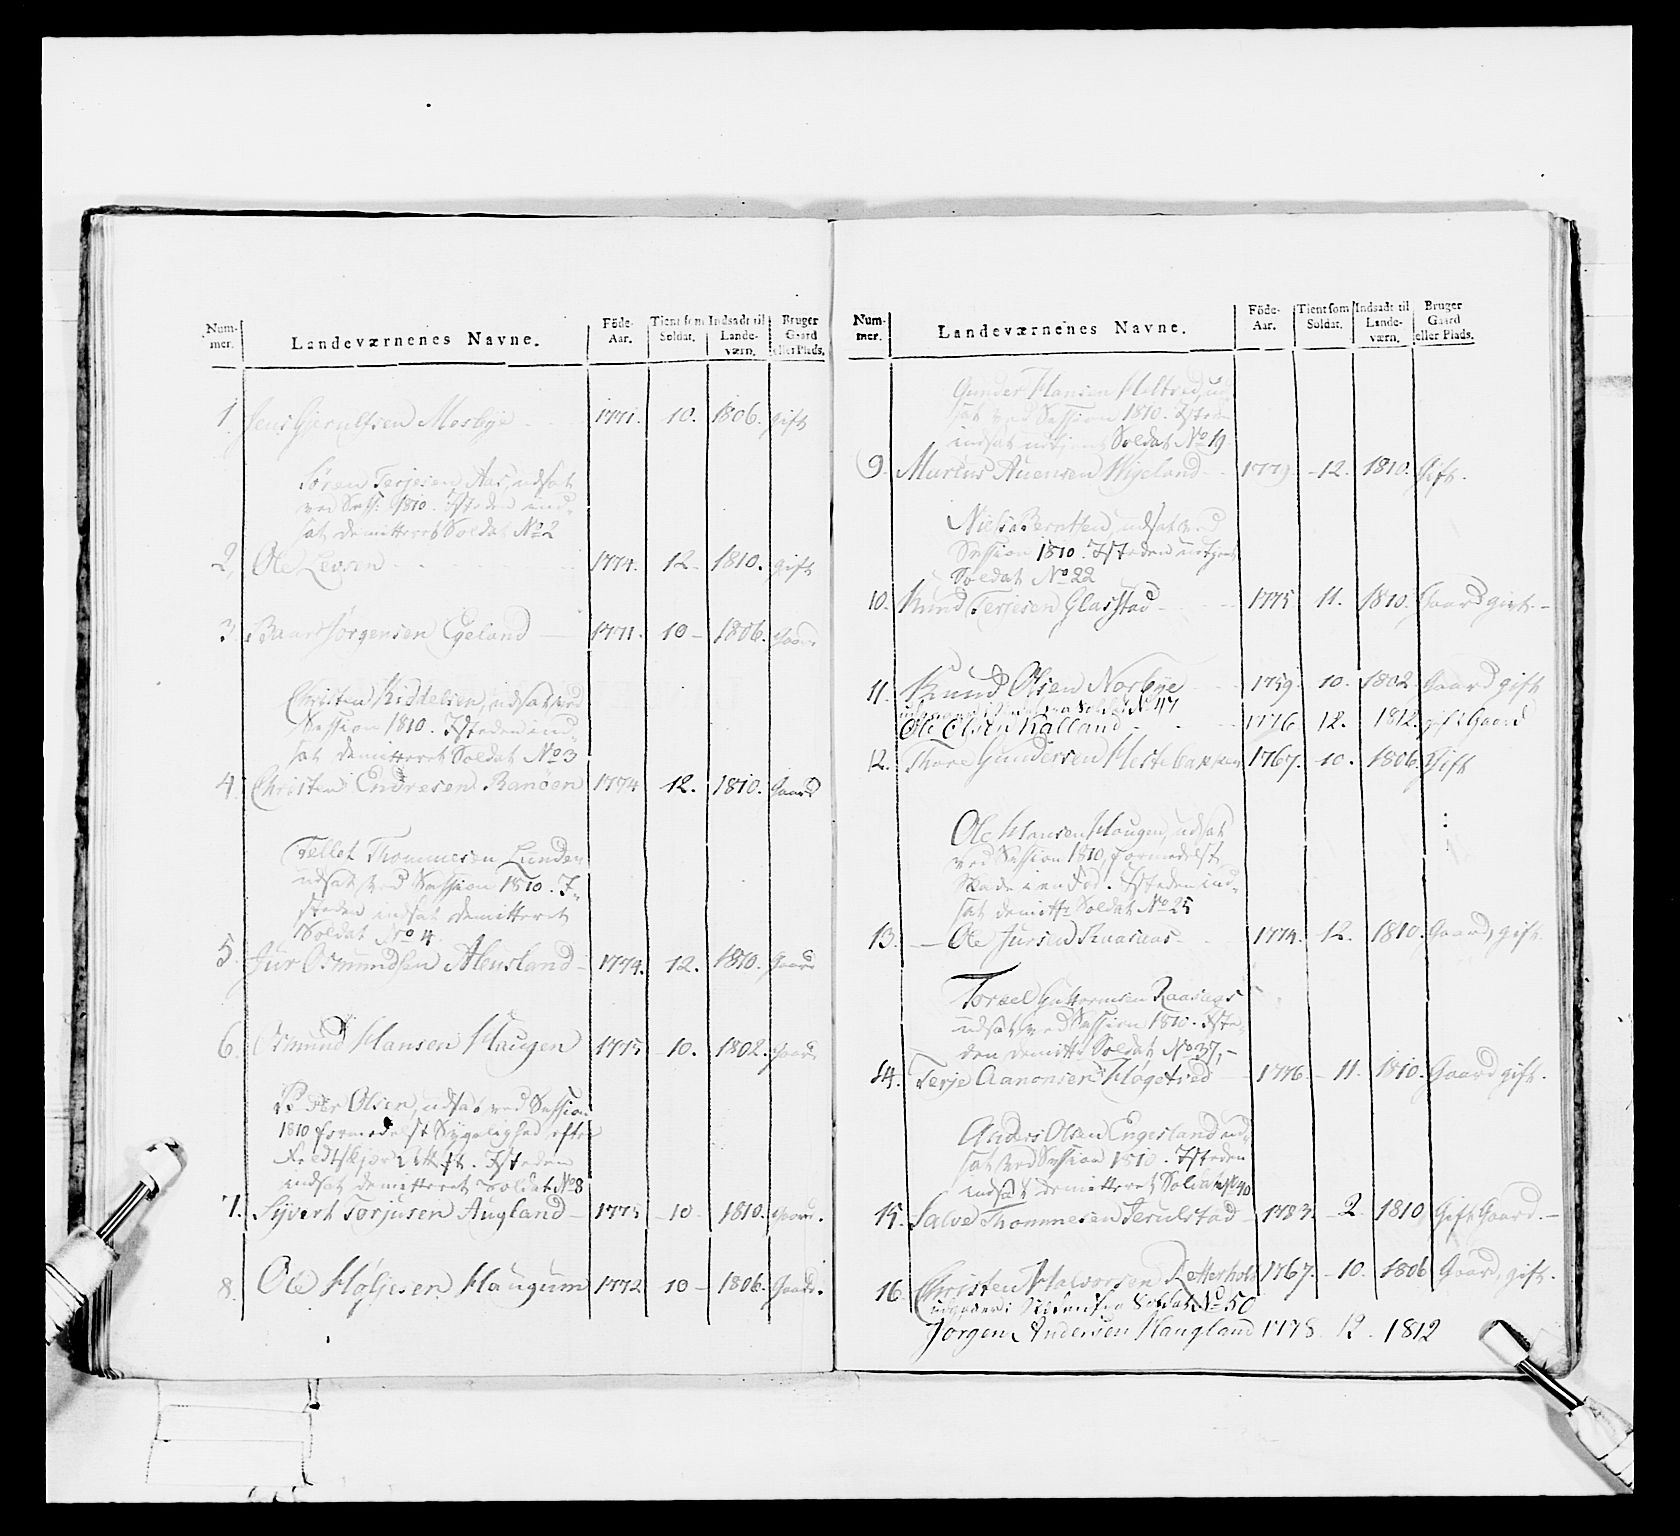 Num-
mer.
Landeværnenes Navne.
Föde-
Aar.
Tient som
Soldat.
Indsadt til
Lande-
værn.
Bruger
Gaard
eller Plads.
1. Jens Gjerulfsen Mosbye 1771. 10. 1806. gift
Sören Terjesen Aas, udsat
ved Sess: 1810. Isteden ind-
sat demitteret Soldat No 2
2. Ole Levon 1774. 12. 1810. gift
3. Baar Jörgensen Egeland 1771. 10 - 1806. Gaard
Christen Kiddelsen, udsat ved
Session 1810. Isteden ind-
sat demitteret Soldat No 3
4. Christen Endresen Ranöen 1774 12. 1810. Gaard
Tellef Thommesen Lunden
udsat ved Session 1810. I-
steden indsat demitteret
Soldat No 4.
5. Jur Osmundsen Aleusland - 1774. 12. 1810. Gaard
6. Osmund Hansen Haugen 1775 10. 1802. Gaard
Peder Olsen, udsat ved Session
1810 formedelst Sygelighed efter
Isteden
indsat demitteret Soldat No 8
7. Syvert Torjusen Augland - 1775 - 10 - 1810. Gaard.
8. Ole Holjesen Haugum 1772 10 - 1806. Gaard.
Num-
mer.
Landeværnenes Navne.
Föde-
Aar.
Tient som
Soldat.
Indsadt til
Lande-
værn.
Bruger
Gaard
eller Plads.
Gunder Hansen ud-
sat ved Session 1810. Isteden
indsat udtjent Soldat No 19
9. Murtus Auensen Wigeland 1779. - 12. 1810. Gift.
Niels Berntsen, udsat ved
Session 1810. Isteden udtjent
Soldat No 22
10. Knud Terjesen Glasstad - 1775 11. 1810. Gaard gift. -
11. Knud Olsen Nosbye 1759. 10. 1802 Gaard gift
Soldat No 47
Ole Olsen Kalland 1776 12. 1812. gift Gaard
12. Thore Gundersen Hestebakken 1767. 10. 1806. Gift
Ole Hansen Haugen, udsat
ved Session 1810, formedelst
Skade i en Fod. Isteden ind-
sat demitt: Soldat No 25
13. - Ole Jursen Raasaas 1774. 12. 1810. Gaard, gift.
Torael Guttormsen Raasaas
udsat ved Session 1810. Iste-
den demitt: Soldat No 37, -
14. Terje Aanonsen Hagetved 1776. - 11. 1810. Gaard gift.
Anders Olsen Engesland ud-
sat ved Session 1810. Isteden
indsat demitteret Soldat No 40
15. Salve Thommesen Ierulstad - 1783. - 2. 1810 Gift Gaard. -
16. Christen Halvorsen Retterholt 1767. - 10. 1806 Gaard, gift.
Soldat No 50
Jörgen Andersen Haugland 1778. 12. 1812